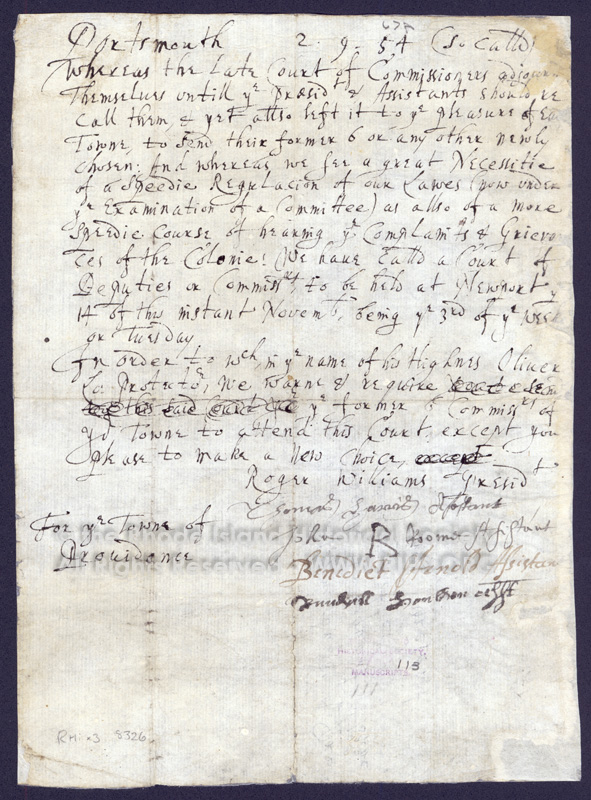 677
Portsmouth 2. 9. 54 (so calld)
Whereas the Late Court of Commissioners adjourn
Themselves untill yᵉ Præsidᵗ & Assistants should re
Call them, & yet allso left it to yᵉ pleasure of Ea
Towne, to send their former 6 or any other newly
chosen: And whereas we see a great Necessitie
of a speedie Regulacion of our Lawes (now under
yᵉ Examination of a Committee) as allso of a more
speedie Course of hearing yᵉ Complaints & Grievan
ces of the Colonie: We have Calld a Court of
Deputies or Commissʳˢ, to be held at Newport yᵉ
14 of this instant Novembʳ, being yᵉ 3rd of yᵉ Week
or Tuesday
In order to wch, in yᵉ name of his Highnes Oliver
Lo: Protectoʳ, We warne & require
yᵉ former 6 Commissʳˢ of
yʳ Towne to attend this Court, except you
please to make a New Choice,
Roger Williams Presidᵗ
Thomas Harris Assistant
For yᵉ Towne of
John Roome Assistant
Providence
Benedict Arnold Assistant
Randall Houlden Assist
HISTORICAL SOCIETY.
118
MANUSCRIPTS
111
RHi x3 8326